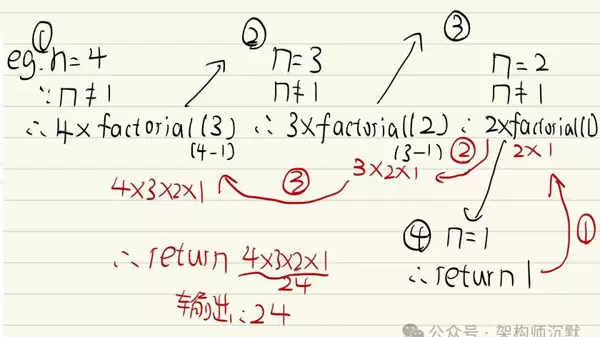 ① ② ③
eg: n=4
n=3
n=2
∵ n≠1
n≠1
n≠1
∴ 4×factorial(3) ∴ 3×factorial(2) ∴ 2×factorial(1)
(4-1)
(3-1)
②
2×1
4×3×2×1
③
3×2×1
④ n=1
①
∴ return 4×3×2×1
24
∴ return 1
输出: 24
公众号 · 架构师沉默